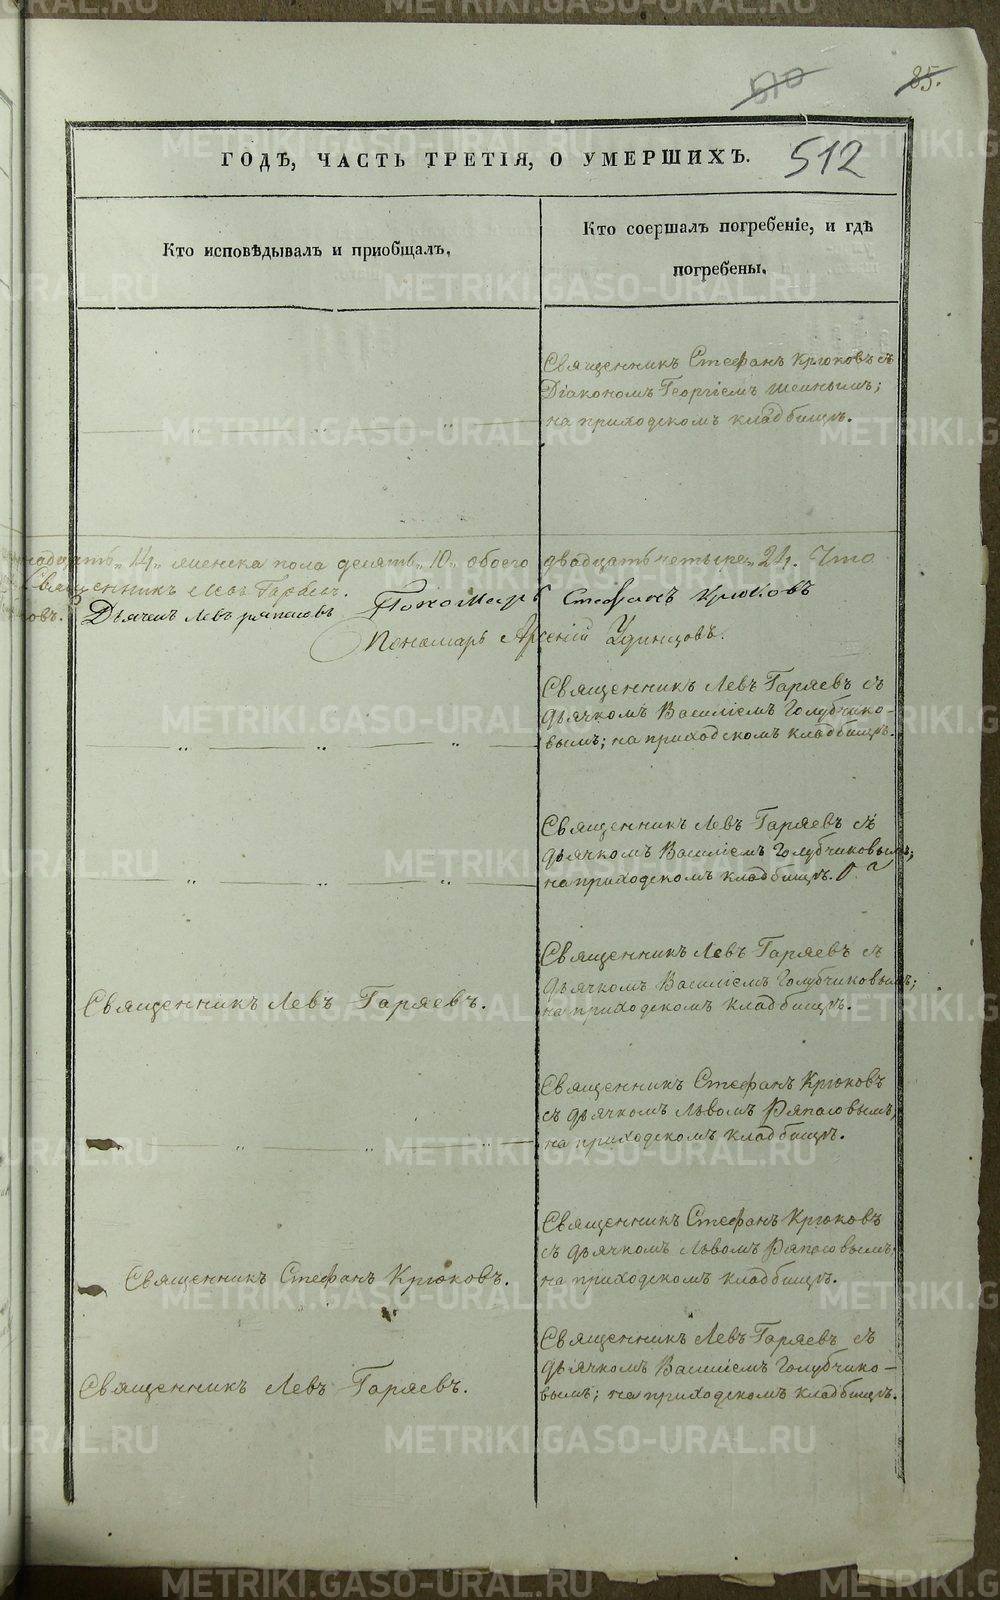 510
85.
ГОДѢ, ЧАСТЬ ТРЕТІЯ, О УМЕРШИХЪ.
512
Кто исповѣдывалъ и пріобщалъ.
Кто соершалъ погребеніе, и гдѣ
погребены.
Священникъ Стефанъ Крюковъ съ
Діакономъ Георгіемъ
на приходскомъ кладбищѣ.
надцать„ 14„ женска пола десять„ 10„ обоего двадцать четыре„ 24. Что
Священникъ Левъ Гаряевъ.
овъ. Дьячекъ Левъ Ряпасовъ Пономарь Стефанъ Крюковъ
Пономарь Арсеній Удинцовъ.
Священникъ Левъ Гаряевъ съ
дьячкомъ Василіемъ Голубчико-
вымъ; на приходскомъ кладбищѣ.
Священникъ Левъ Гаряевъ съ
дьячкомъ Василіемъ Голубчиковымъ;
на приходскомъ кладбищѣ.
Священникъ Левъ Гаряевъ.
Священникъ Левъ Гаряевъ съ
дьячкомъ Василіемъ Голубчиковымъ;
на приходскомъ кладбищѣ.
Священникъ Стефанъ Крюковъ
съ дьячкомъ Львомъ Ряпасовымъ,
на приходскомъ кладбищѣ.
Священникъ Стефанъ Крюковъ.
Священникъ Стефанъ Крюковъ
съ дьячкомъ Львомъ Ряпасовымъ;
на приходскомъ кладбищѣ.
Священникъ Левъ Гаряевъ.
Священникъ Левъ Гаряевъ съ
дьячкомъ Василіемъ Голубчико-
вымъ; на приходскомъ кладбищѣ.
METRIKI.GASO-URAL.RU